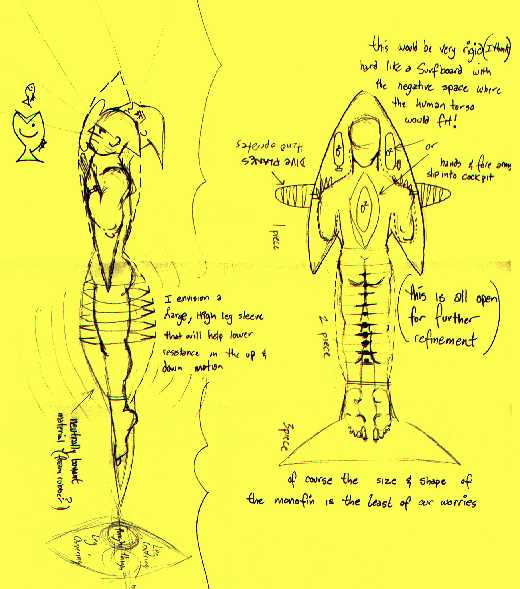 this would be very rigid (I think)
hard like a surfboard with
the negative space where
the human torso
would fit!
DIVE PLANES
O2
O2
or
hands & fore arms
slip into cockpit
O2
1 piece
I envision a
large, thigh leg sleeve
that will help lower
resistance in the up &
down motion
(this is all open
for further
refinement)
2 piece
neutrally buoyant
material (foam rubber?)
3 piece
of course the size & shape of
the monofin is the least of our worries
Leg
Covering
Leg
Covering